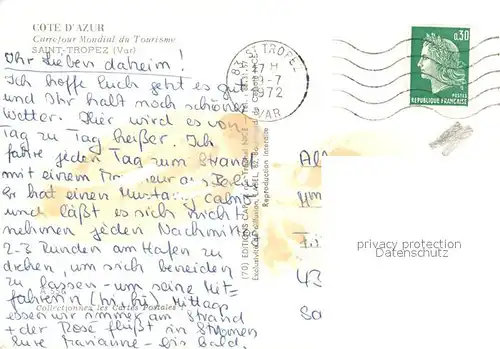 COTE D'AZUR
Carrefour Mondial du Tourisme
SAINT-TROPEZ (Var)
Ihr Lieben daheim!
Ich hoffe Euch geht es gut
und Ihr habt noch schönes
Wetter. Hier wird es von
Tag zu Tag heißer. Ich
fahre jeden Tag zum Strand
mit einem aus Berlin
Er hat einen Mustang
und läßt es sich nicht
nehmen jeden Nachmittag
2-3 Runden am Hafen zu
drehen, um sich beneiden
zu lassen - um seine Mit-
fahrerin (hi, hi). Mittags
Collectionnez les Cartes Postales
essen wir immer am Strand
+ der Rosé fließt in Strömen
Eure Marianne - bis bald.
83 ST TROPEZ
17 H
-7
1972
VAR
0,30
POSTES
REPUBLIQUE FRANÇAISE
(70) EDITIONS CAP
NICE
Reproduction interdite
43
privacy protection
Datenschutz